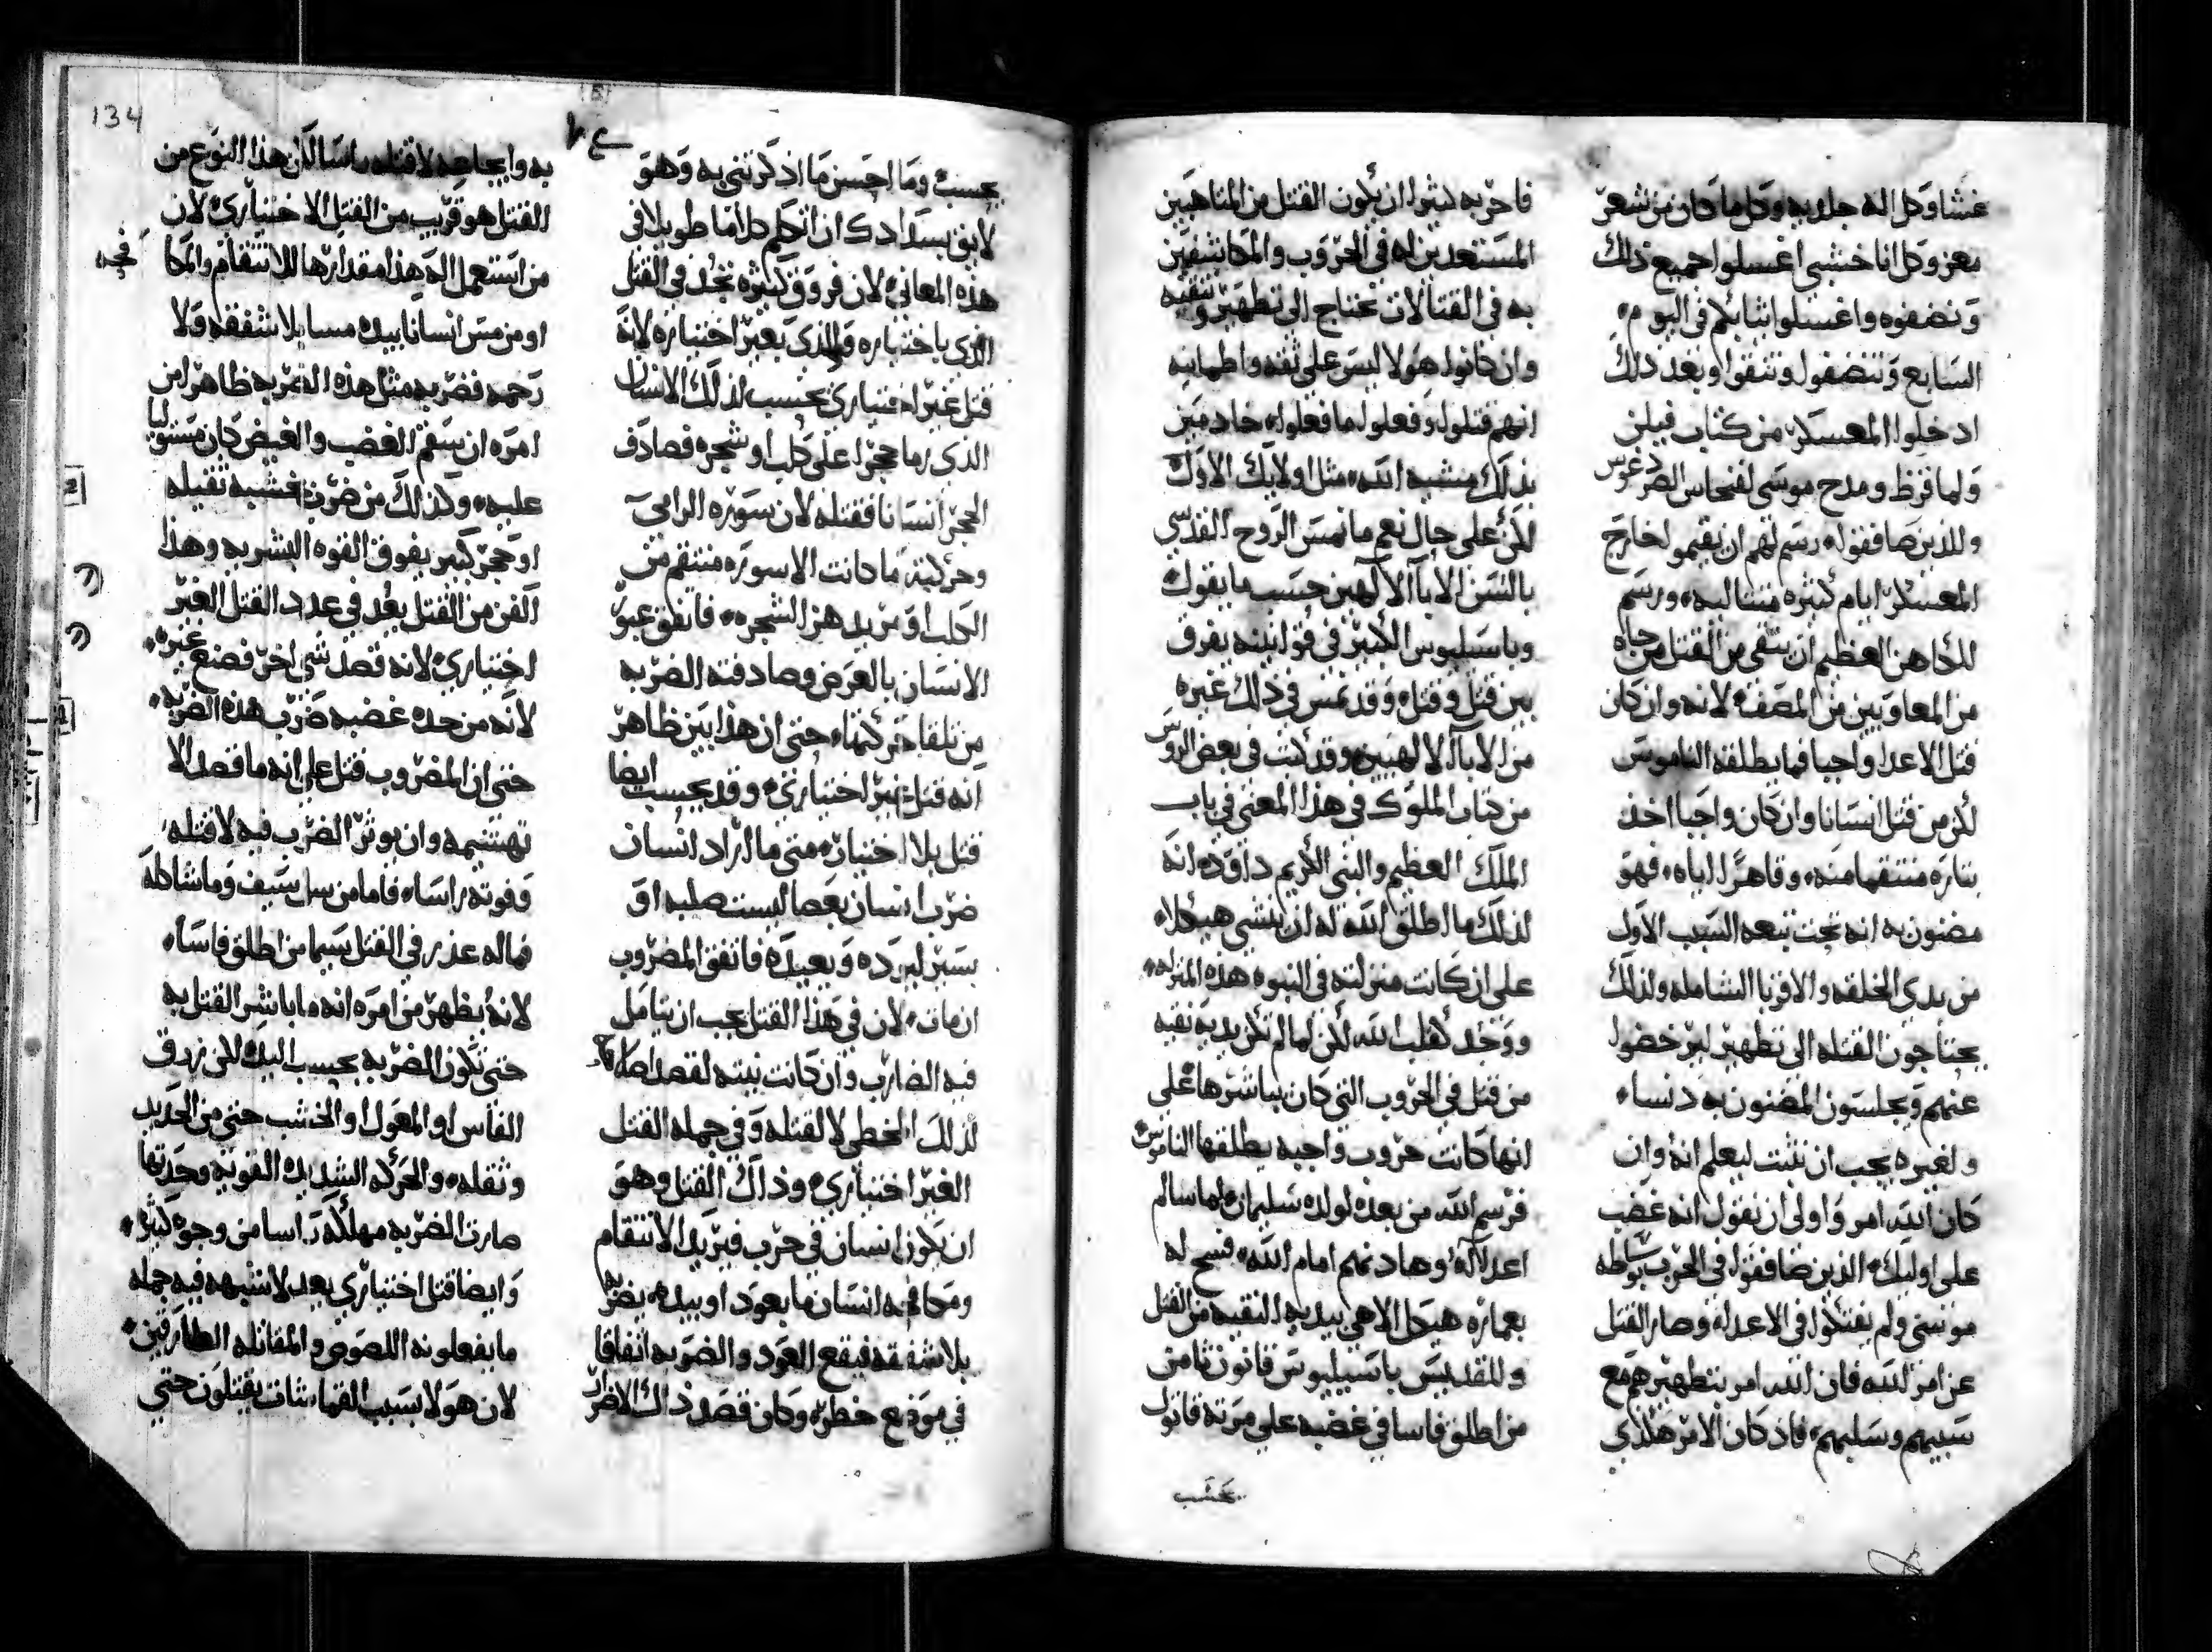 غشا وكل اله جلديه وكل ما كان من شعر
معز وكل انا خشبي اغسلوا جميع ذلك
ونضفوه واغسلوا ثيابكم في اليوم
السابع وتنضفوا وتنقوا وبعد ذلك
ادخلوا المعسكر من كتاب فيلن
ولما قرظ ومدح موسى لفنحاس
وللذين صافقوه رسم لهم ان يقيموا خارج
المعسكر ايام كثيره متتاليه ورسم
للكاهن العظيم ان يتقى من القتل من جاه
من المعاوبين من المصف لانه وان كان
قتل الاعدا واجبا فما يطلقه الناموس
لكن من قتل انسانا وان كان واجبا اخذ
بتاره منتقما منه وقاهرا اياه فهو
مضنون به انه تحت تبعه السبب الاول
من بدي الخلقه والاقربا الشامله ولذلك
يحتاجون القتله الى تطهير ليرخضوا
عنهم ويجلسون المضنون به دنسا
ولغيره يجب ان نثبت ليعلم انه وان
كان الله امر واولى ان نقول انه غضب
على اوليك الذين صافقوا في الحرب بوساطه
موسى ولم يفتكوا في الاعدا وصار القتل
عن امر الله فان الله امر بتطهيرهم مع
سبيهم وسليبهم فاذ كان الامر هكذي
فاحر به ليثوا ان يكون القتل من المتاهبين
المستعدين له في الحروب والمكاشفين
به في القتالات تحتاج الى تطهير وتنقيه
وان كانوا هولا ليس على ثقه واطمانيه
انهم قتلوا وفعلوا ما فعلوا خادمين
بذلك مشيه الله مثل اوليك الاول
لكن على حال نعم ما نمس الروح القدسي
بالسن الابا الالهيين حسب ما يقول
وباسيليوس الكبير في قوانينه يفرق
بين قتل وقتل وقد نمس في ذلك غيره
من الابا الالهيين وقد كتب في بعض الروس
من كتاب الملوك في هذا المعنى في باب
الملك العظيم والنبي الكريم داوود انه
لذلك ما اطلق الله له ان ينشي هيكلا
على ان كانت منزلته في النبوه هذه المنزله
ووجد كقلب الله لكن لما لم تكن يديه نقيه
من قتل في الحروب التي كان يباشرها على
انها كانت حروب واجبه يطلقها الناموس
فرسم الله من بعده لولده سليمان لما سالم
اعداه وهادنهم امام الله فسح له
بعماره هيكل الاهي بيديه النقيه من القتل
وللقديس باسيليوس قانون ثامن
من اطلق فاسا في غضبه على مرته قاتول
يحسب
134
يحسب وما احسن ما اذكرتني به وهو
لايق بسدادك ان اتكلم كلاما طويلا في
هذه المعاني لان فروق كثيره تجد في القتل
الذي باختياره والذي بغير اختياره لانه
قتل غير اختياري يحسب لذلك الانسان
الذي رما حجرا على كلب او شجره فصادف
الحجر انسانا فقتله لان سوره الرامي
وحركيته ما كانت الا سوره منتقم من
الكلب او مريد هز الشجره فاتفق عبور
الانسان بالعرض وصادفته الضربه
من تلقا حركتها حتى ان هذا بين ظاهر
انه قتل غير اختياري وقد يحسب ايضا
قتل بلا اختيار متى ما اراد انسان
ضرب انسان بعصا ليست صلبه او
بسير ليرده ويعيده فاتفق المضروب
ان مات لان في هذا القتل يجب ان يتامل
فيه الضارب وان كانت نيته لقصد اصلاح
لذلك المخطي لا لقتله وفي جمله القتل
الغير اختياري وذاك القتل وهو
ان يكون انسان في حرب فيريد الانتقام
ومكافيه انسان ما بعود او بيده يضربه
بلا شفقه فيقع العود والضربه اتفاقا
في موضع خطره وكان قصد ذاك الاضرار
به وايجاعه لا قتله راسا لكن هذا النوع من
القتل هو قريب من القتل الاختياري لان
من استعمل اله هذا مقدارها للانتقام والمكا
او من مس انسانا بيده مسا بلا شفقه ولا
رحمه فضربه مثل هذه الضربه ظاهر من
امره ان سقم الغضب والغيض كان مستوليا
عليه وكذلك من ضرب بخشبه ثقيله
او حجر كبير يفوق القوه البشريه وهذا
الفن من القتل يعد في عدد القتل الغير
اختياري لانه قصد شي اخر فصنع غيره
لانه من حده غضبه ضرب هذه الضربه
حتى ان المضروب قتل على انه ما قصد الا
تهشيمه وان يوثر الضرب فيه لا قتله
وفوته راسا فاما من سل سيف وما شاكله
فما له عذر في القتل سيما من اطلق فاسا
لانه يظهر من امره انه ما باشر القتل به
حتى تكون الضربه بحسب اليد بل زرق
الفاس او المعول او الخشب حتى من الحديد
وثقله والحركه الشديده القويه وحدتها
صارت الضربه مهلكه راسا من وجوه كثيره
وايضا قتل اختياري يعد لا شبهه فيه جمله
ما يفعلونه اللصوص والمقاتله الطارقين
لان هولا بسبب القماشات يقتلون حتى